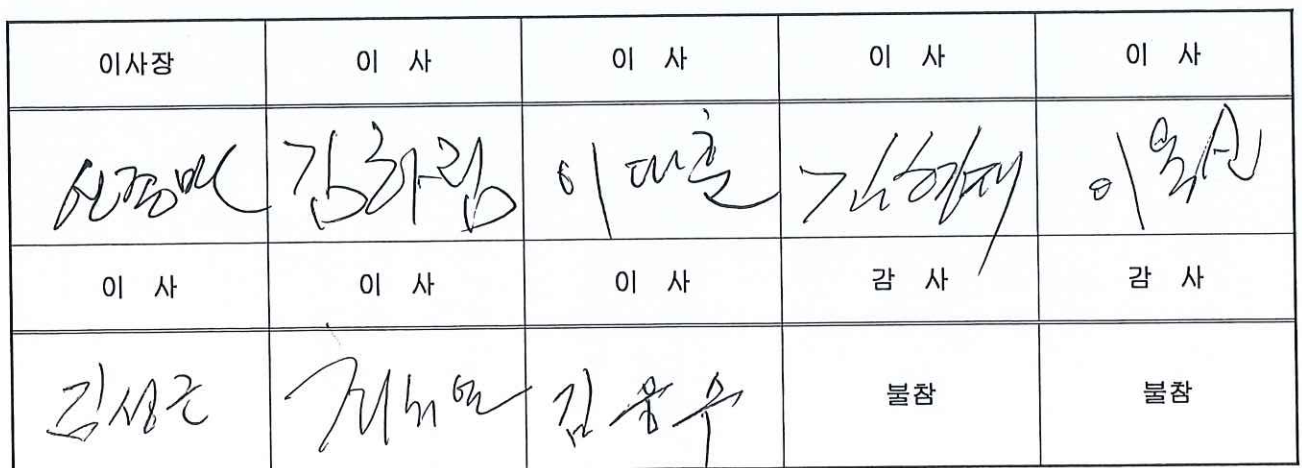 이사장 이 사 이 사 이 사 이 사
김하림 이대훈 김형태
이 사 이 사 이 사 감 사 감 사
김성근 김웅우 불참 불참